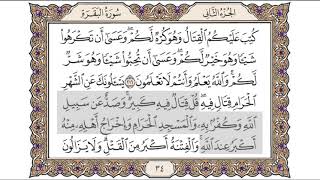 الجزء الثاني
سورة البقرة
كُتِبَ عَلَيْكُمُ ٱلْقِتَالُ وَهُوَ كُرْهٌ لَّكُمْ وَعَسَىٰٓ أَن تَكْرَهُوا۟
شَيْـًٔا وَهُوَ خَيْرٌ لَّكُمْ وَعَسَىٰٓ أَن تُحِبُّوا۟ شَيْـًٔا وَهُوَ شَرٌّ
لَّكُمْ وَٱللَّهُ يَعْلَمُ وَأَنتُمْ لَا تَعْلَمُونَ يَسْـَٔلُونَكَ عَنِ ٱلشَّهْرِ
ٱلْحَرَامِ قِتَالٍ فِيهِ قُلْ قِتَالٌ فِيهِ كَبِيرٌ وَصَدٌّ عَن سَبِيلِ
ٱللَّهِ وَكُفْرٌۢ بِهِۦ وَٱلْمَسْجِدِ ٱلْحَرَامِ وَإِخْرَاجُ أَهْلِهِۦ مِنْهُ
أَكْبَرُ عِندَ ٱللَّهِ وَٱلْفِتْنَةُ أَكْبَرُ مِنَ ٱلْقَتْلِ وَلَا يَزَالُونَ
٣٤